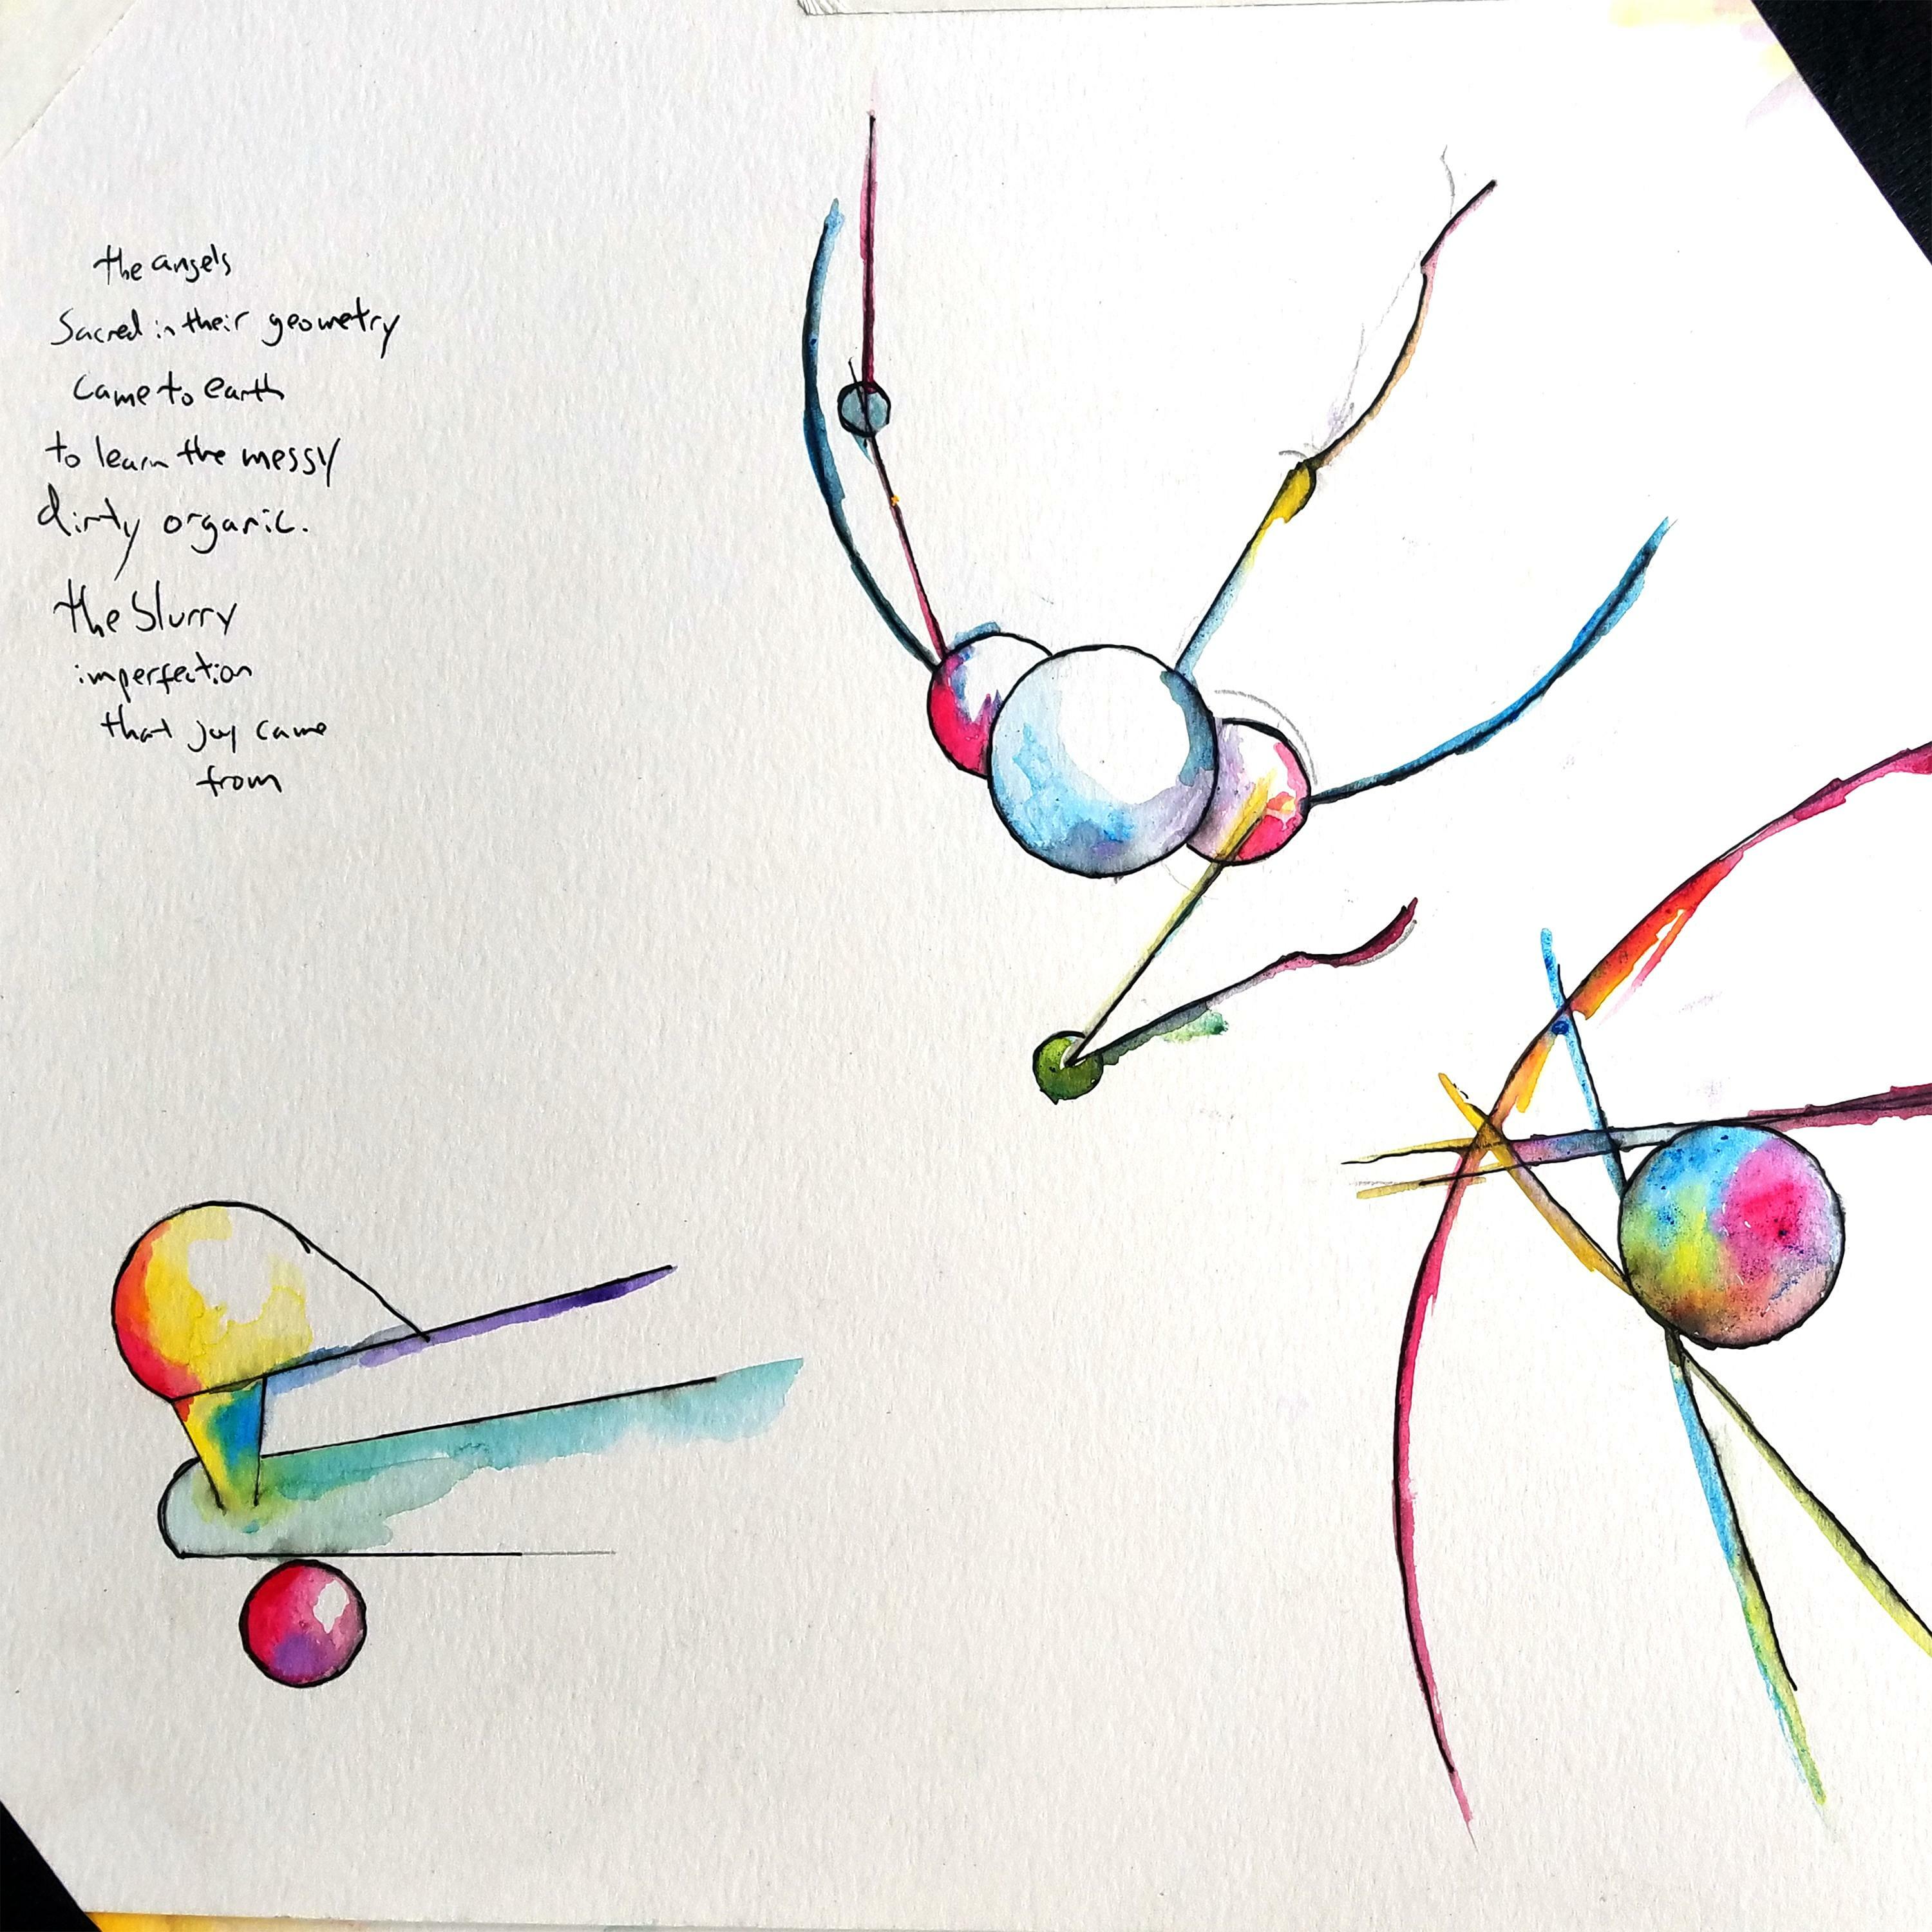 the angels
Sacred in their geometry
Came to earth
to learn the messy
dirty organic.
the blurry
imperfection
that joy came
from